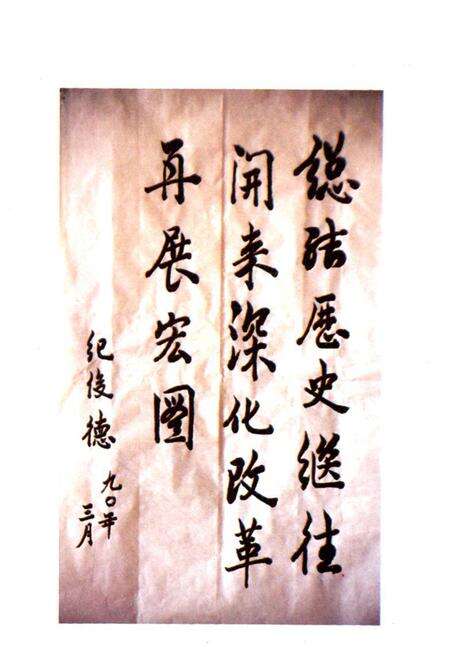 總结歷史继往
開来深化改革
再展宏圖
纪俊德
九〇年
三月